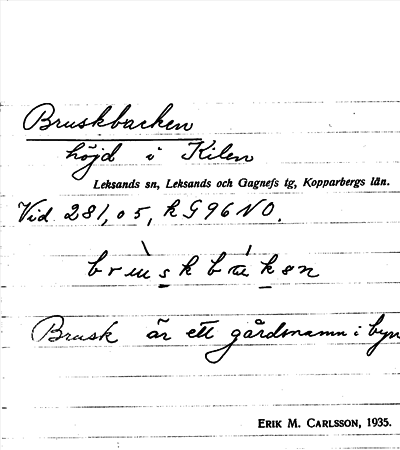 Bruskbacken
höjd i Kilen
Leksands sn, Leksands och Gagnefs tg, Kopparbergs län.
Vid 281,05, k G96NO.
Brusk är ett gårdsnamn i byn
ERIK M. CARLSSON, 1935.